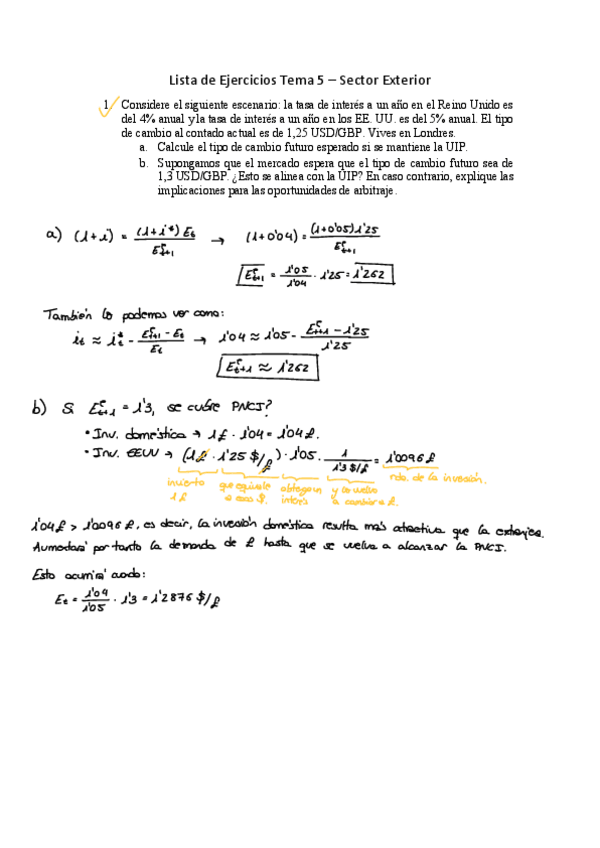 Lista de Ejercicios Tema 5 – Sector Exterior
1. Considere el siguiente escenario: la tasa de interés a un año en el Reino Unido es
del 4% anual y la tasa de interés a un año en los EE. UU. es del 5% anual. El tipo
de cambio al contado actual es de 1,25 USD/GBP. Vives en Londres.
a. Calcule el tipo de cambio futuro esperado si se mantiene la UIP.
b. Supongamos que el mercado espera que el tipo de cambio futuro sea de
1,3 USD/GBP. ¿Esto se alinea con la UIP? En caso contrario, explique las
implicaciones para las oportunidades de arbitraje.
a) (1+i) = (1+i*) Et / Eᵉt+1 → (1+0'04) = (1+0'05)1'25 / Eᵉt+1
Eᵉt+1 = 1'05 / 1'04 · 1'25 = 1'262
También lo podemos ver como:
it ≈ i*t - Eᵉt+1 - Et / Et → 1'04 ≈ 1'05 - Eᵉt+1 - 1'25 / 1'25
Eᵉt+1 ≈ 1'262
b) Si Eᵉt+1 = 1'3, se cubre PNCI?
• Inv. doméstica → 1£ · 1'04 = 1'04 £.
• Inv. EEUU → (1£ · 1'25 $/£) · 1'05 · 1 / 1'3 $/£ = 1'0096 £
invierto que equivale obtengo un y lo vuelvo rndo. de la inversión.
1 £ a esos $. interés a cambiar a £.
1'04 £ > 1'0096 £, es decir, la inversión doméstica resulta más atractiva que la extranjera.
Aumentará por tanto la demanda de £ hasta que se vuelva a alcanzar la PNCI.
Esto ocurrirá cuando:
Et = 1'04 / 1'05 · 1'3 = 1'2876 $/£